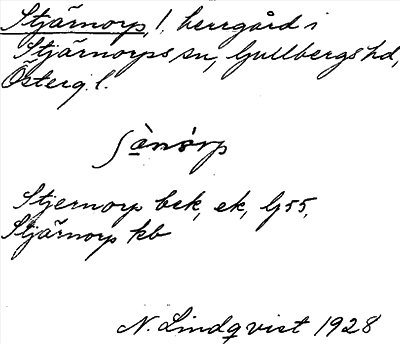 Stjärnorp, 1. herrgård i
Stjärnorps sn, Gullbergs hd,
Österg. l.
ʃä̀nórp
Stjernorp bek, ek, G 55,
Stjärnorp kb
N. Lindqvist 1928